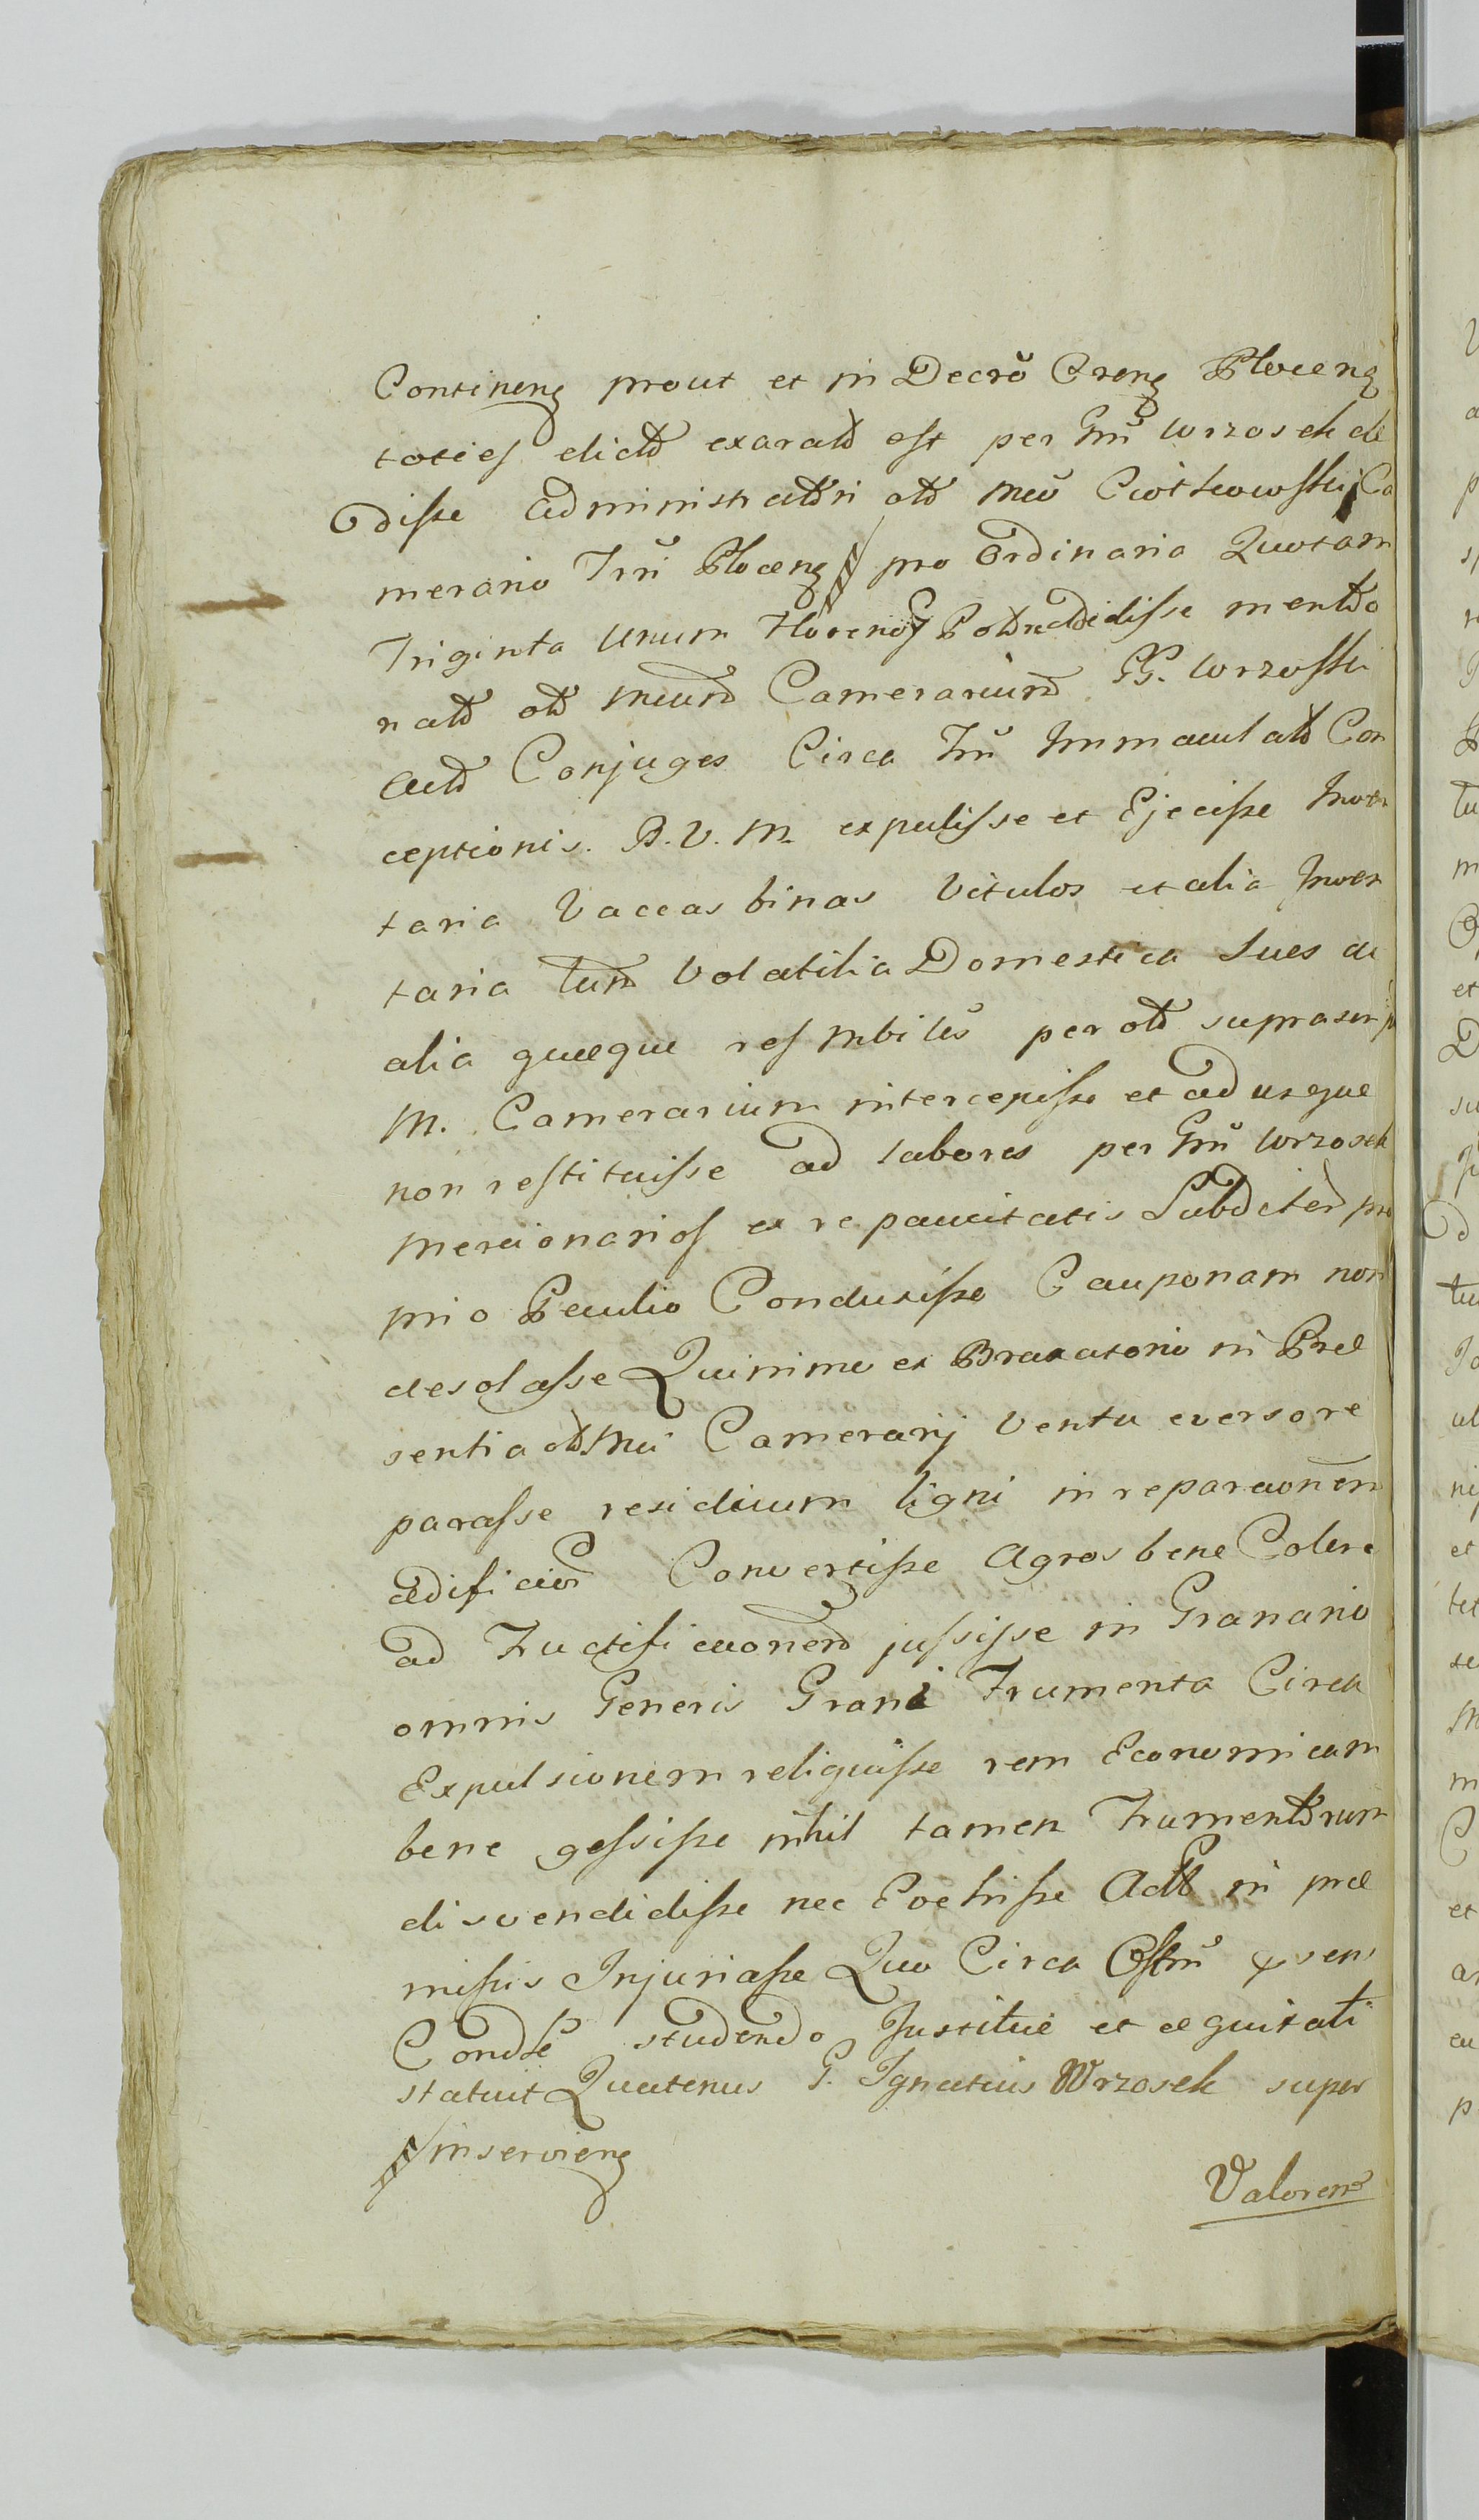 Continens prout et in Decrō Crens Plocens
toties dicto exarato est per Gnū Wrzosek de
disse Administratori olim Mco Cwitkowski Ca
merario Trri Plocens pro Ordinaria Quotam
Triginta Unum Florenos Pol reddidisse mento
nato olim Mcum Camerarium GG. Wrzoski
Conjuges Circa Immaculat Con
ceptionis. B. V. M. expulisse et Ejecisse Inven
taria Vaccas binas Vitulos et alia Inven
taria tum Volatilia Domestica Sues ac
alia quæque res mbiles per olim suprascrip
M. Camerarium intercepisse et ad usque
non restituisse ad labores per Gnū Wrzosek
Mercionarios ex re paucitatis Subditor pro
prio Peculio Conduxisse Cauponam non
desolasse Quinimo ex Braxatorio in Præ
sentia olim Mci Camerarij Ventu everso re
parasse residuum ligni in reparaonem
ædificior Convertisse Agros bene Colere
ad Fructificaonem jussisse in Granario
omnis Generis Grani Frumenta Circa
Expulsionem reliquisse rem Economicam
bene gessisse nihil tamen Frumentorum
disvendidisse nec Evehisse in præ
missis Injuriasse Quo Circa
studendo Justitiæ et æquitati
statuit Quatenus G. Ignatius Wrzosek super
inserviens
Valorem